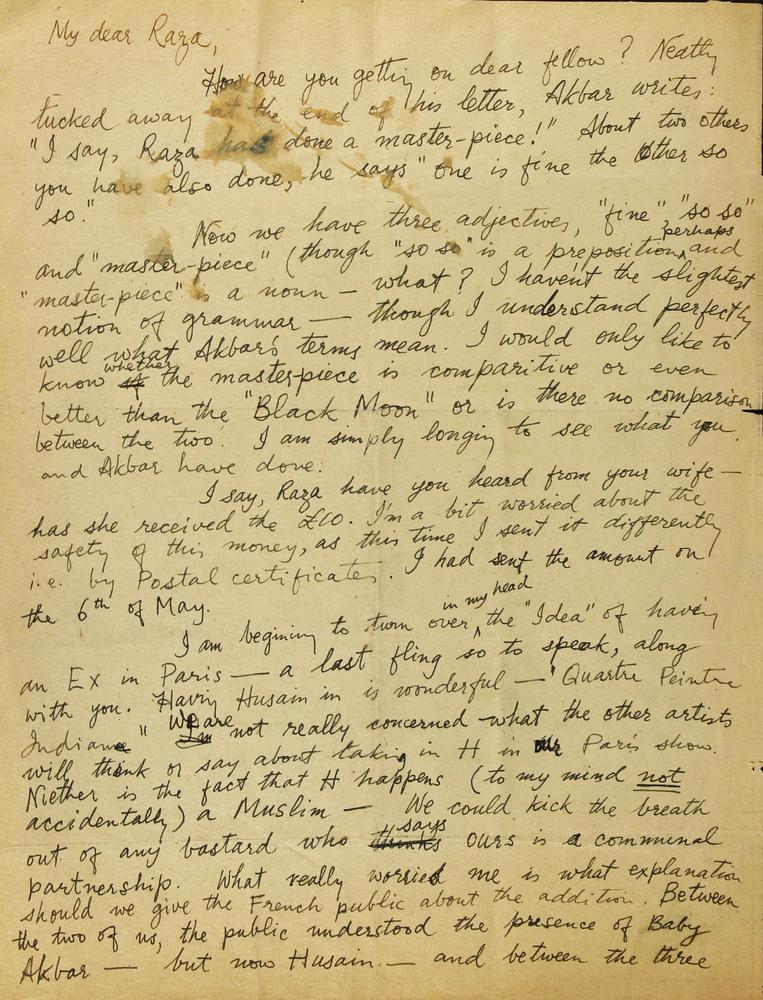 My dear Raza,
How are you getting on dear fellow? Neatly
tucked away at the end of his letter, Akbar writes:
"I say, Raza has done a master-piece!" About two others
you have also done, he says "one is fine the other so
so."
Now we have three adjectives, "fine", "so so"
and "master-piece" (though "so so" is a preposition, perhaps and
"master-piece" is a noun – what? I haven't the slightest
notion of grammar — though I understand perfectly
well what Akbar's terms mean. I would only like to
know if whether the masterpiece is comparitive or even
better than the "Black Moon" or is there no comparison
between the two. I am simply longing to see what you
and Akbar have done.
I say, Raza have you heard from your wife —
has she received the £10. I'm a bit worried about the
safety of this money, as this time I sent it differently
i.e. by Postal certificates. I had sent the amount on
the 6th of May.
I am begining to turn over in my head the "Idea" of having
an Ex in Paris — a last fling so to speak, along
with you. Having Husain in is wonderful — "Quartre Peintre
Indiane" I'm We are not really concerned what the other artists
will think or say about taking in H in our Paris show.
Niether is the fact that H happens (to my mind not
accidentally) a Muslim — We could kick the breath
out of any bastard who thinks says ours is a communal
partnership. What really worried me is what explanation
should we give the French public about the addition. Between
the two of us, the public understood the presence of Baby
Akbar — but now Husain — and between the three